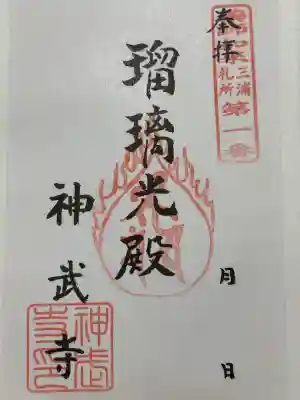 奉拝
三浦
札所
第一番
瑠璃光殿
神武寺
月 日
神武
寺印